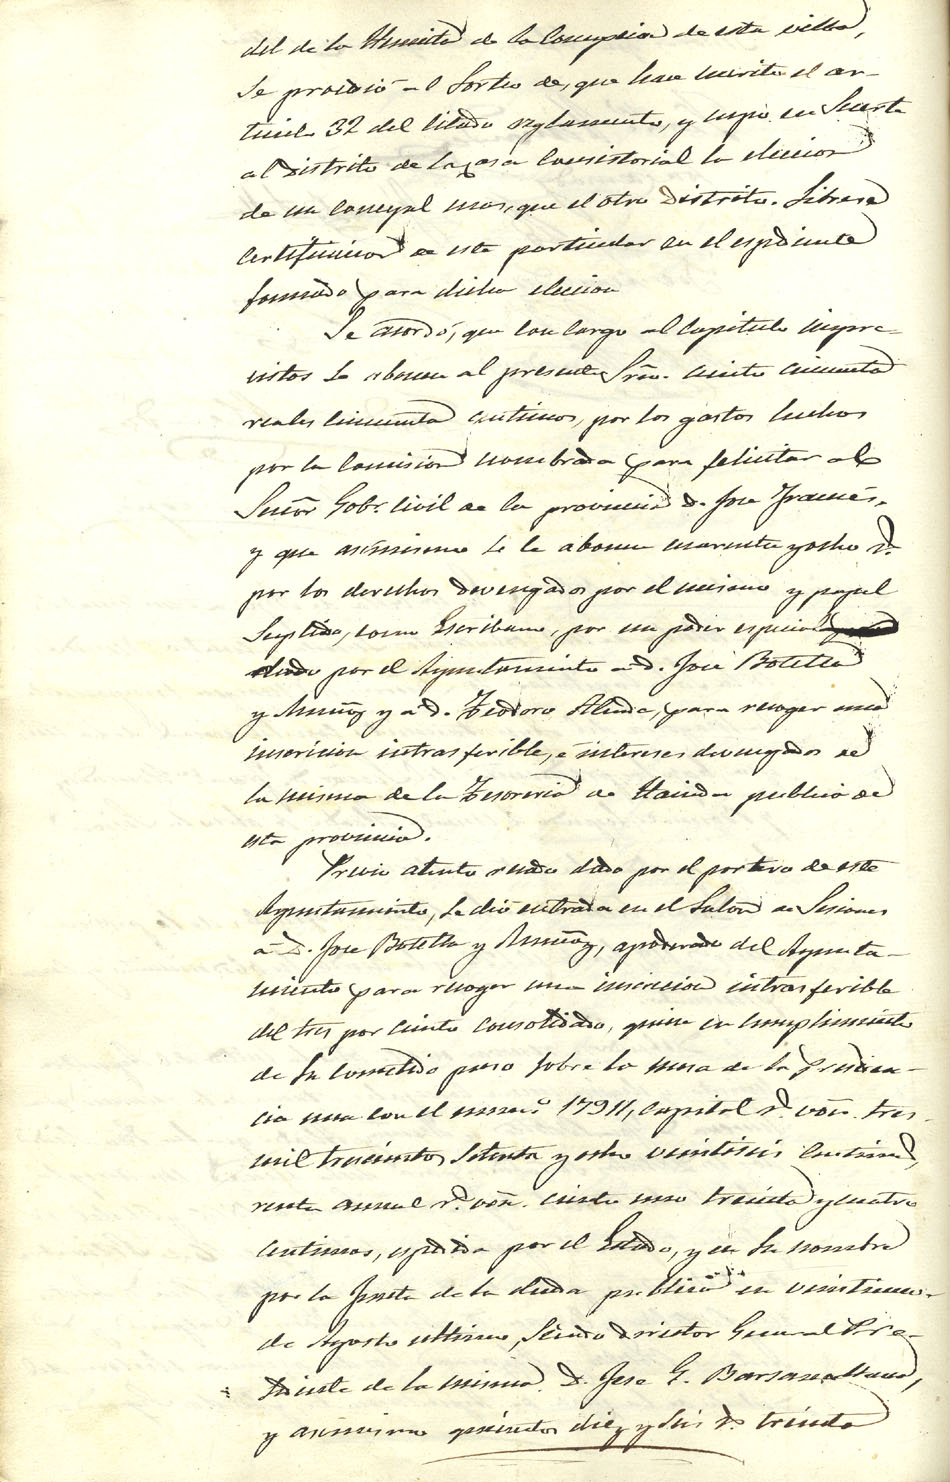 del de la Hermita de la Concepcion de esta villa,
se procedió al sorteo de, que hace merito el ar-
ticulo 32 del citado reglamento, y cupo en suerte
al Distrito de la casa Consistorial la eleccion
de un concejal mas, que el otro Distrito. Librese
certificacion de este particular en el espediente
formado para dicha eleccion
Se acordó, que con cargo al Capitulo impre-
vistos se abonen al presente Srio. ciento cincuenta
reales cincuenta centimos, por los gastos hechos
por la Comision nombrada para felicitar al
Señor Gobr. Civil de la provincia D. Jose Frances,
y que asimismo se le abonen cuarenta y ocho rs.
por los derechos devengados por el mismo y papel
suplido, como Escribano, por un poder especial
dado por el Ayuntamiento a D. José Botella
y Muñoz y a D. Teodoro Alenda, para recoger una
inscricion intrasferible, e intereses devengados de
la misma de la Tesoreria de Hacienda publica de
esta provincia.
Previo atento recado dado por el portero de este
Ayuntamiento, se dió entrada en el Salon de Sesiones
á D. Jose Botella y Muñoz, apoderado del Ayunta-
miento para recoger una inscricion intrasferible
del tres por ciento consolidado, quien en cumplimiento
de su cometido puso sobre la mesa de la Presiden-
cia una con el numero 17911, capital rs. von. tres
mil trecientos setenta y ocho veintiseis centimos,
renta annual rs. von. ciento uno treinta y cuatro
centimos, espedida por el Estado, y en su nombre
por la Junta de la deuda publica en veintinueve
de Agosto ultimo, siendo Director General Pre-
sidente de la misma D. Jose G. Barsanallana,
y asimismo quinientos diez y seis rs. treinta